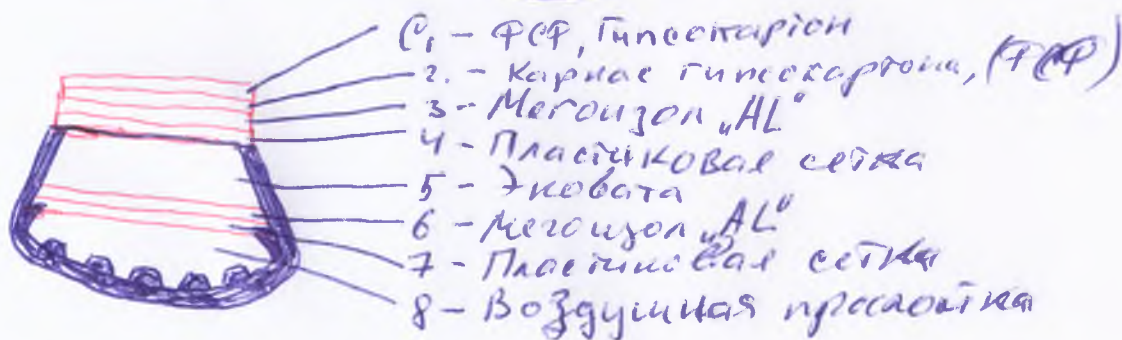 С, - ФСФ, Гипсокартон
2. - Каркас гипсокартона, (ФСФ)
3 - Мегоизол „AL"
4 - Пластиковая сетка
5 - Эковата
6 - Мегоизол „AL"
7 - Пластиковая сетка
8 - Воздушная прослойка